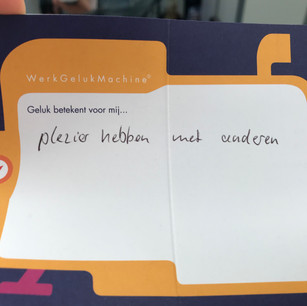 WerkGelukMachine®
Geluk betekent voor mij...
plezier hebben met anderen